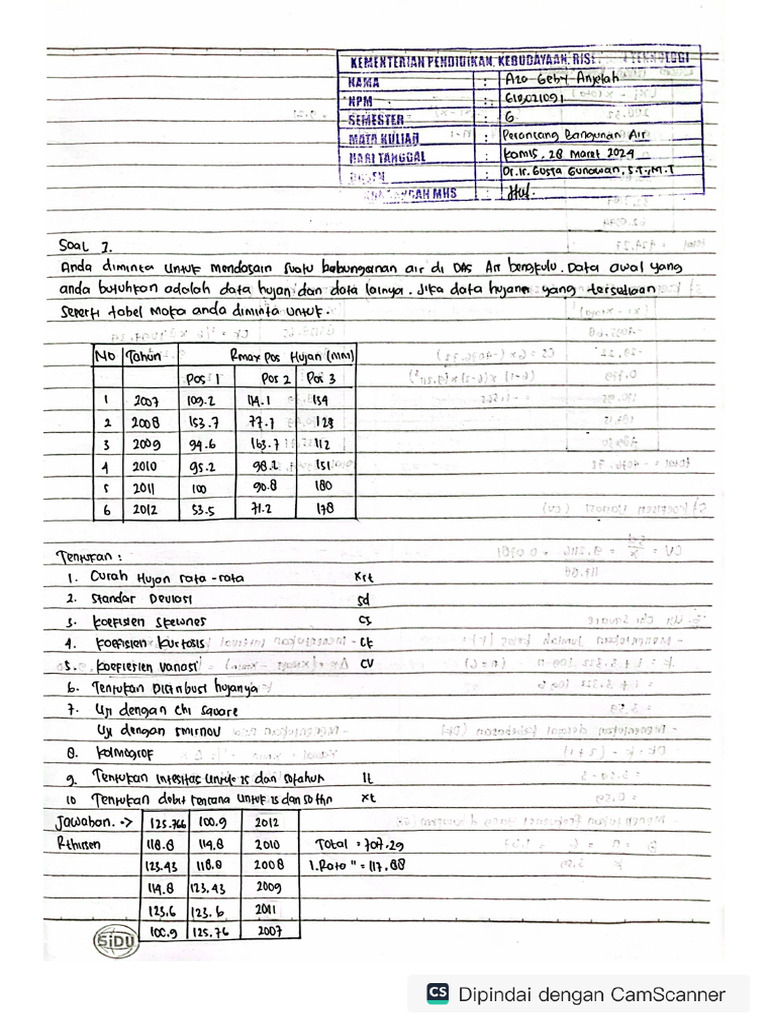 KEMENTERIAN PENDIDIKAN, KEBUDAYAAN, RISET TEKNOLOGI
NAMA : Azo Geby Anjelah
NPM : G1B021091
SEMESTER : 6
MATA KULIAH : Perancang Bangunan Air
HARI TANGGAL : Kamis, 28 Maret 2024
DOSEN : Dr. Ir. Gusta Gunawan, S.T., M.T
TANGAN MHS :
Soal 1.
Anda diminta untuk mendosain suatu babunganan air di DAS Air bengkulu. Data awal yang
anda butuhkan adalah data hujan dan data lainya. Jika data hujana yang tersediaan
seperti tabel Maka anda diminta untuk.
No Tahun Rmax Pos Hujan (MM)
Pos 1 Pos 2 Pos 3
1 2007 109.2 114.1 154
2 2008 153.7 77.1 128
3 2009 94.6 163.7 112
4 2010 95.2 98.2 151
5 2011 100 90.8 180
6 2012 53.5 71.2 178
Tentukan :
1. Curah Hujan rata-rata Xrt
2. Standar Deviasi sd
3. Koefisien Skewnes Cs
4. Koefisien Kurtosis Ck
5. Koefisien Variasi CV
6. Tentukan Distribusi hujanya
7. Uji dengan Chi Square
Uji dengan smirnov
8. Kolmogrof
9. Tentukan Intesitas Untuk 25 dan 50 tahun It
10 Tentukan debit rencana untuk 25 dan 50 thn Xt
Jawaban. -> 125.766 100.9 2012
R thissen 118.8 114.8 2010 Total = 707.29
123.43 118.8 2008 1. Rata" = 117.88
114.8 123.43 2009
123.6 123.6 2011
100.9 125.76 2007
SiDU
CS Dipindai dengan CamScanner